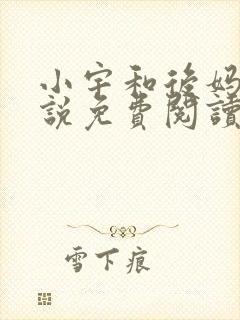 小宇和後妈
說免費閱讀
雪下痕